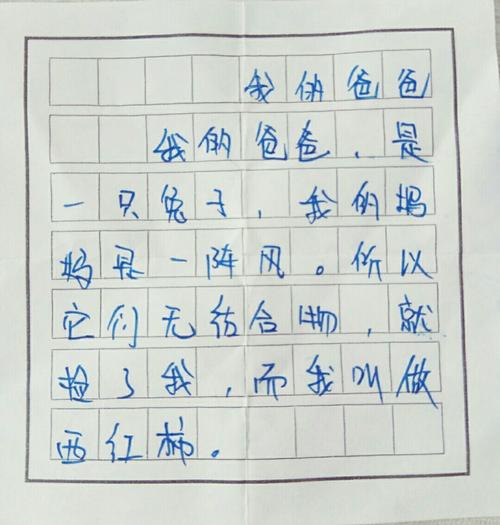 我的爸爸
我的爸爸,是
一只兔子,我的妈
妈是一阵风。所以
它们无结合物,就
捡了我,而我叫做
西红柿。